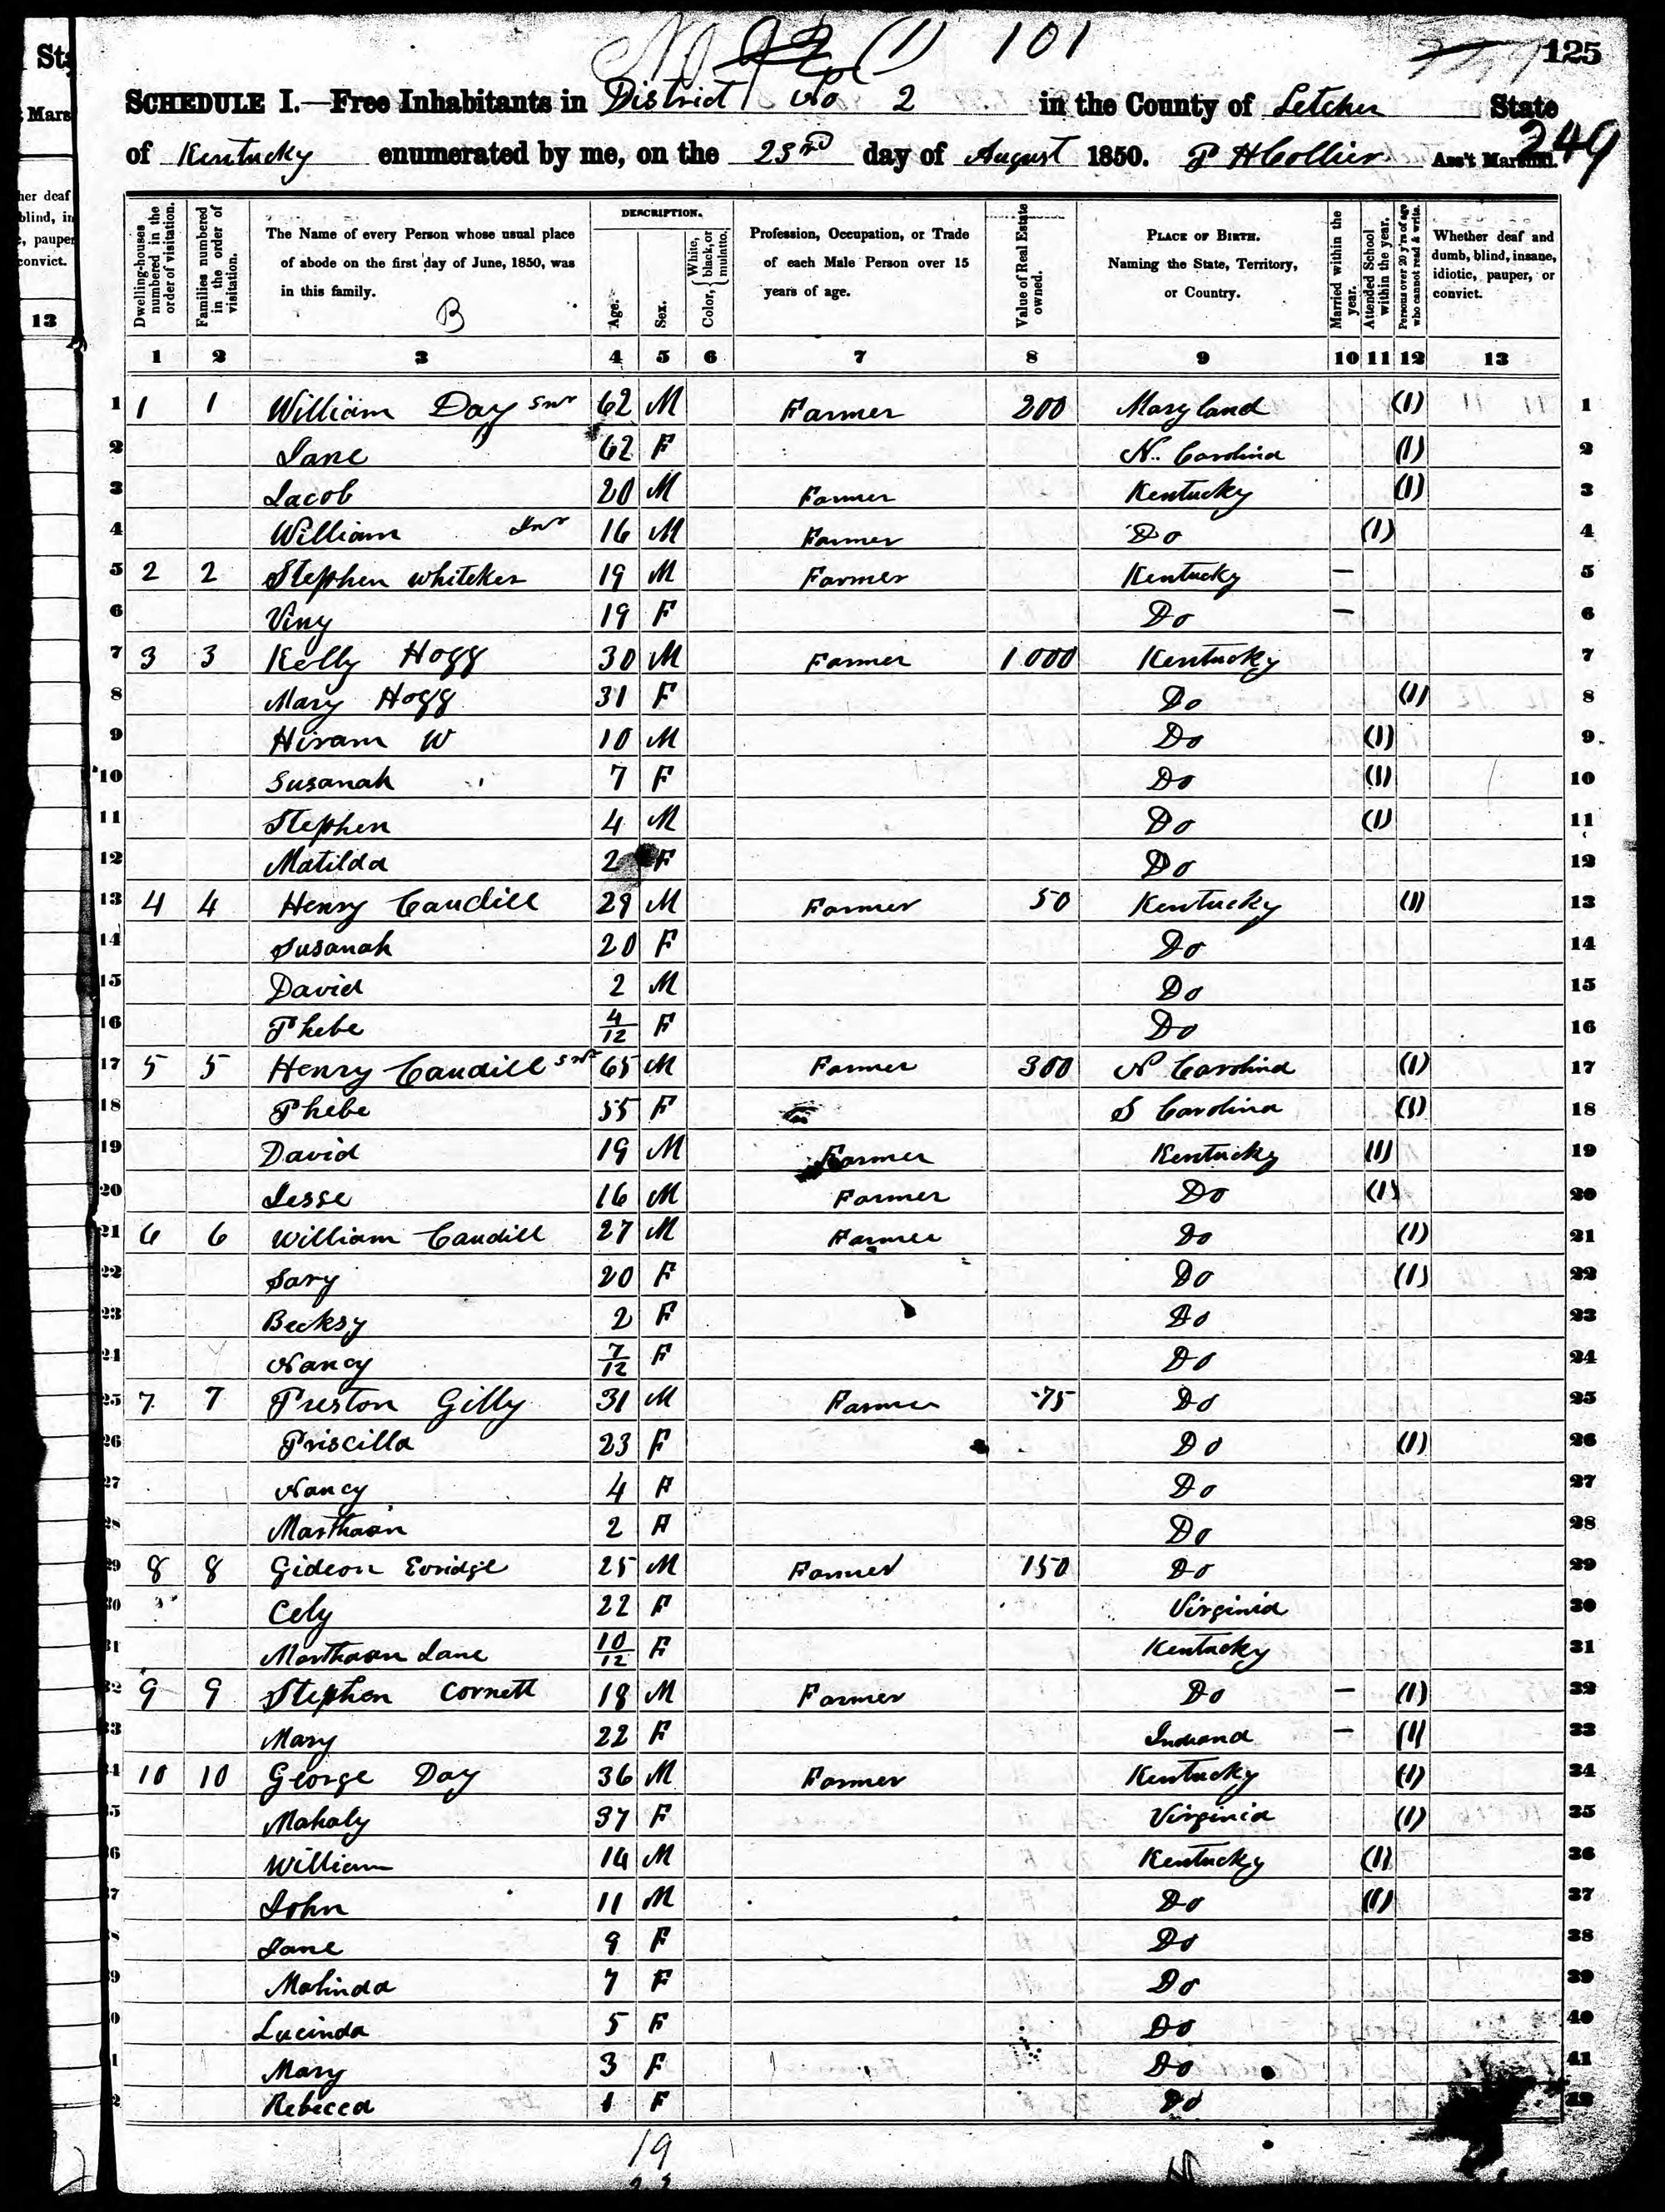 (1) 101 125
SCHEDULE I.—Free Inhabitants in District No 2 in the County of Letcher State
249
of Kentucky enumerated by me, on the 23rd day of August 1850. P H Collier Ass't Marshal.
Dwelling-houses numbered in the order of visitation.
Families numbered in the order of visitation.
The Name of every Person whose usual place of abode on the first day of June, 1850, was in this family.
B
DESCRIPTION.
Age.
Sex.
Color, White, black, or mulatto.
Profession, Occupation, or Trade of each Male Person over 15 years of age.
Value of Real Estate owned.
PLACE OF BIRTH. Naming the State, Territory, or Country.
Married within the year.
Attended School within the year.
Persons over 20 y'rs of age who cannot read & write.
Whether deaf and dumb, blind, insane, idiotic, pauper, or convict.
1 2 3 4 5 6 7 8 9 10 11 12 13
1 1 1 William Day Snr 62 M Farmer 200 Maryland (1) 1
2 Jane 62 F N. Carolina (1) 2
3 Jacob 20 M Farmer Kentucky (1) 3
4 William Jnr 16 M Farmer Do (1) 4
5 2 2 Stephen Whiteker 19 M Farmer Kentucky — 5
6 Viny 19 F Do — 6
7 3 3 Kelly Hogg 30 M Farmer 1000 Kentucky 7
8 Mary Hogg 31 F Do (1) 8
9 Hiram W 10 M Do (1) 9
10 Susanah 7 F Do (1) 10
11 Stephen 4 M Do (1) 11
12 Matilda 2 F Do 12
13 4 4 Henry Caudill 29 M Farmer 50 Kentucky (1) 13
14 Susanah 20 F Do 14
15 David 2 M Do 15
16 Phebe 4/12 F Do 16
17 5 5 Henry Caudill Snr 65 M Farmer 300 N Carolina (1) 17
18 Phebe 55 F S Carolina (1) 18
19 David 19 M Farmer Kentucky (1) 19
20 Jesse 16 M Farmer Do (1) 20
21 6 6 William Caudill 27 M Farmer Do (1) 21
22 Sary 20 F Do (1) 22
23 Becksy 2 F Do 23
24 Nancy 7/12 F Do 24
25 7 7 Preston Gilly 31 M Farmer 75 Do 25
26 Priscilla 23 F Do (1) 26
27 Nancy 4 F Do 27
28 Marthaan 2 F Do 28
29 8 8 Gideon Evridge 25 M Farmer 150 Do 29
30 Cely 22 F Virginia 30
31 Marthaan Jane 10/12 F Kentucky 31
32 9 9 Stephen Cornett 18 M Farmer Do — (1) 32
33 Mary 22 F Indiana — (1) 33
34 10 10 George Day 36 M Farmer Kentucky (1) 34
35 Mahaly 37 F Virginia (1) 35
36 William 14 M Kentucky (1) 36
37 John 11 M Do (1) 37
38 Jane 9 F Do 38
39 Malinda 7 F Do 39
40 Lucinda 5 F Do 40
41 Mary 3 F Do 41
42 Rebecca 1 F Do 42
19